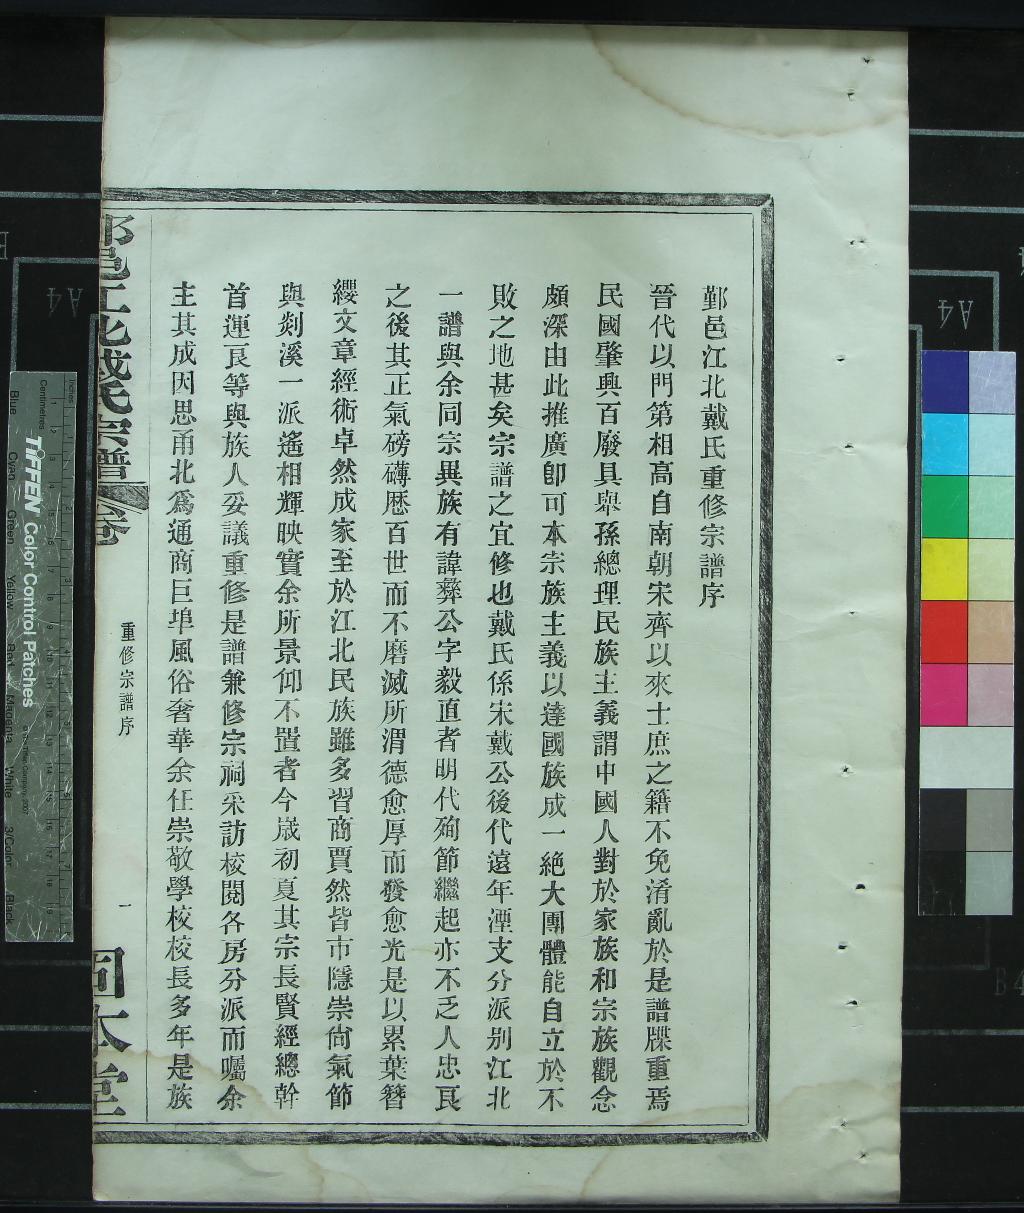 鄞邑江北戴氏重修宗譜序
晉代以門第相高自南朝宋齊以來士庶之籍不免淆亂於是譜牒重焉
民國肇興百廢具舉孫總理民族主義謂中國人對於家族和宗族觀念
頗深由此推廣卽可本宗族主義以達國族成一絶大團體能自立於不
敗之地甚矣宗譜之宜修也戴氏係宋戴公後代遠年湮支分派别江北
一譜與余同宗異族有諱彝公字毅直者明代殉節繼起亦不乏人忠良
之後其正氣磅礴歷百世而不磨滅所渭德愈厚而發愈光是以累葉簪
纓文章經術卓然成家至於江北民族雖多習商賈然皆市隱崇尙氣節
與剡溪一派遙相輝映實余所景仰不置者今歲初夏其宗長賢經總幹
首運良等與族人妥議重修是譜兼修宗祠采訪校閱各房分派而囑余
主其成因思甬北爲通商巨埠風俗奢華余任崇敬學校校長多年是族
鄞邑江北戴氏宗譜
卷
重修宗譜序
一
固本堂
TIFFEN Color Control Patches
Centimetres
Inches
Blue
Cyan
Green
Yellow
Red
Magenta
White
3/Color
Black
A4
A4
B4